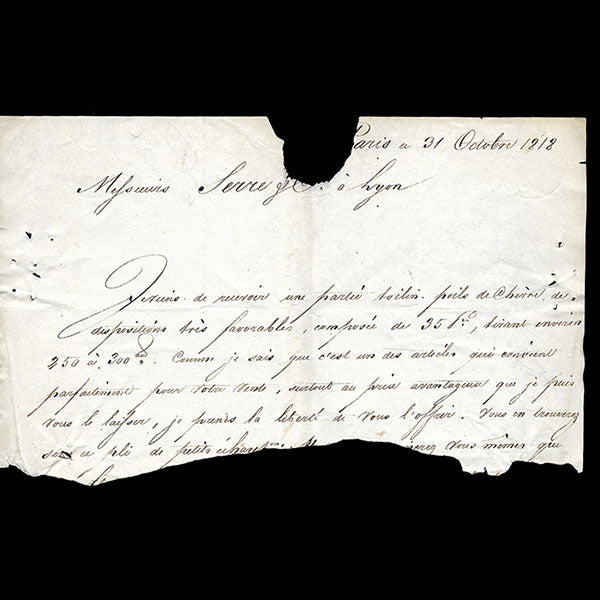 Paris ce 31 Octobre 1818
Messieurs Serre & Cie. à Lyon
Je viens de recevoir une partie toilin poils de Chèvre, de
dispositions très favorables, composée de 35 tirant environ
250 à 300 Comme je sais que c'est un des articles qui convient
parfaitement pour votre vente, surtout au prix avantageux que je puis
vous le laisser, je prends la liberté de vous l'offrir. Vous en trouverez
sous ce pli de petits échant vous mêmes que